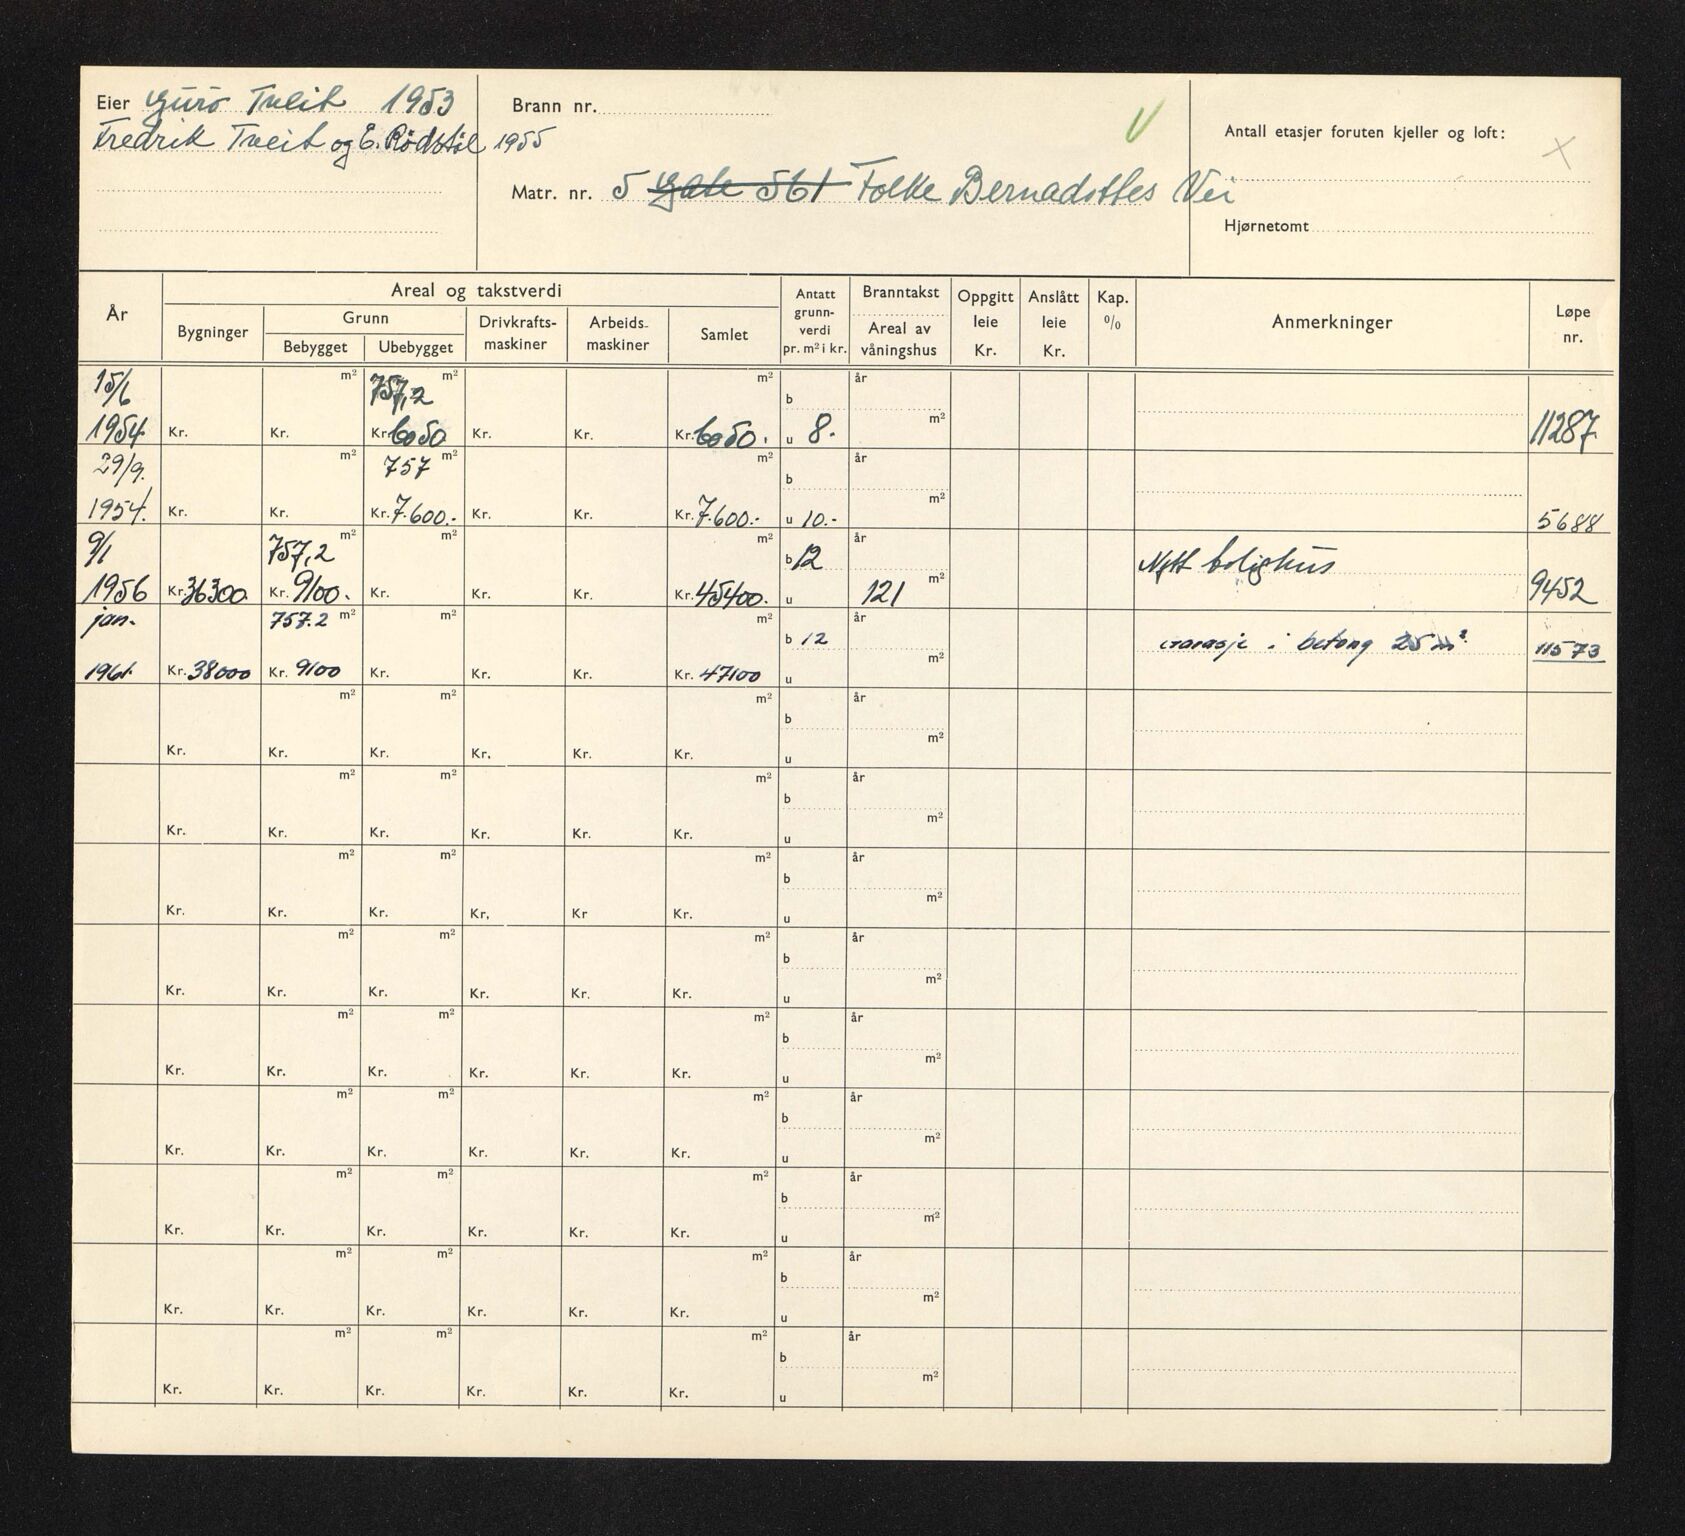 Eier Guro Tveit 1953
Fredrik Tveit og E. Rødstøl 1955
Brann nr.
Matr. nr. 5 Gate 561 Folke Bernadottes Vei
Antall etasjer foruten kjeller og loft:
Hjørnetomt
År
Areal og takstverdi
Bygninger
Grunn
Bebygget
Ubebygget
Drivkrafts-
maskiner
Arbeids-
maskiner
Samlet
Antatt
grunn-
verdi
pr. m² i kr.
Branntakst
Areal av
våningshus
Oppgitt
leie
Kr.
Anslått
leie
Kr.
Kap.
%
Anmerkninger
Løpe
nr.
15/6 m² 757,2 m² m² b år
1954. Kr. Kr. Kr. 6050 Kr. Kr. Kr. 6050. u 8. m² 11287
29/9. m² 757 m² m² b år
1954. Kr. Kr. Kr. 7.600.- Kr. Kr. Kr. 7.600.- u 10.- m² 5688
9/1 757,2 m² m² m² b 12 år Nytt bolighus
1956 Kr. 36300 Kr. 9100. Kr. Kr. Kr. Kr. 45400. u 121 m² 9452
jan. 757.2 m² m² m² b 12 år Garasje i betong 25 m².
1961. Kr. 38000 Kr. 9100 Kr. Kr. Kr. Kr. 47100 u m² 11573
m² m² m² b år
Kr. Kr. Kr. Kr. Kr. Kr. u m²
m² m² m² b år
Kr. Kr. Kr. Kr. Kr. Kr. u m²
m² m² m² b år
Kr. Kr. Kr. Kr, Kr Kr. u m²
m² m² m² b år
Kr. Kr. Kr. Kr. Kr. Kr. u m²
m² m² m² b år
Kr. Kr. Kr. Kr. Kr. Kr. u m²
m² m² m² b år
Kr. Kr. Kr. Kr. Kr. Kr. u m²
m² m² m² b år
Kr. Kr. Kr. Kr. Kr. Kr. u m²
m² m² m² b år
Kr. Kr. Kr. Kr. Kr. Kr. u m²
m² m² m² b år
Kr. Kr. Kr. Kr. Kr. Kr. u m²